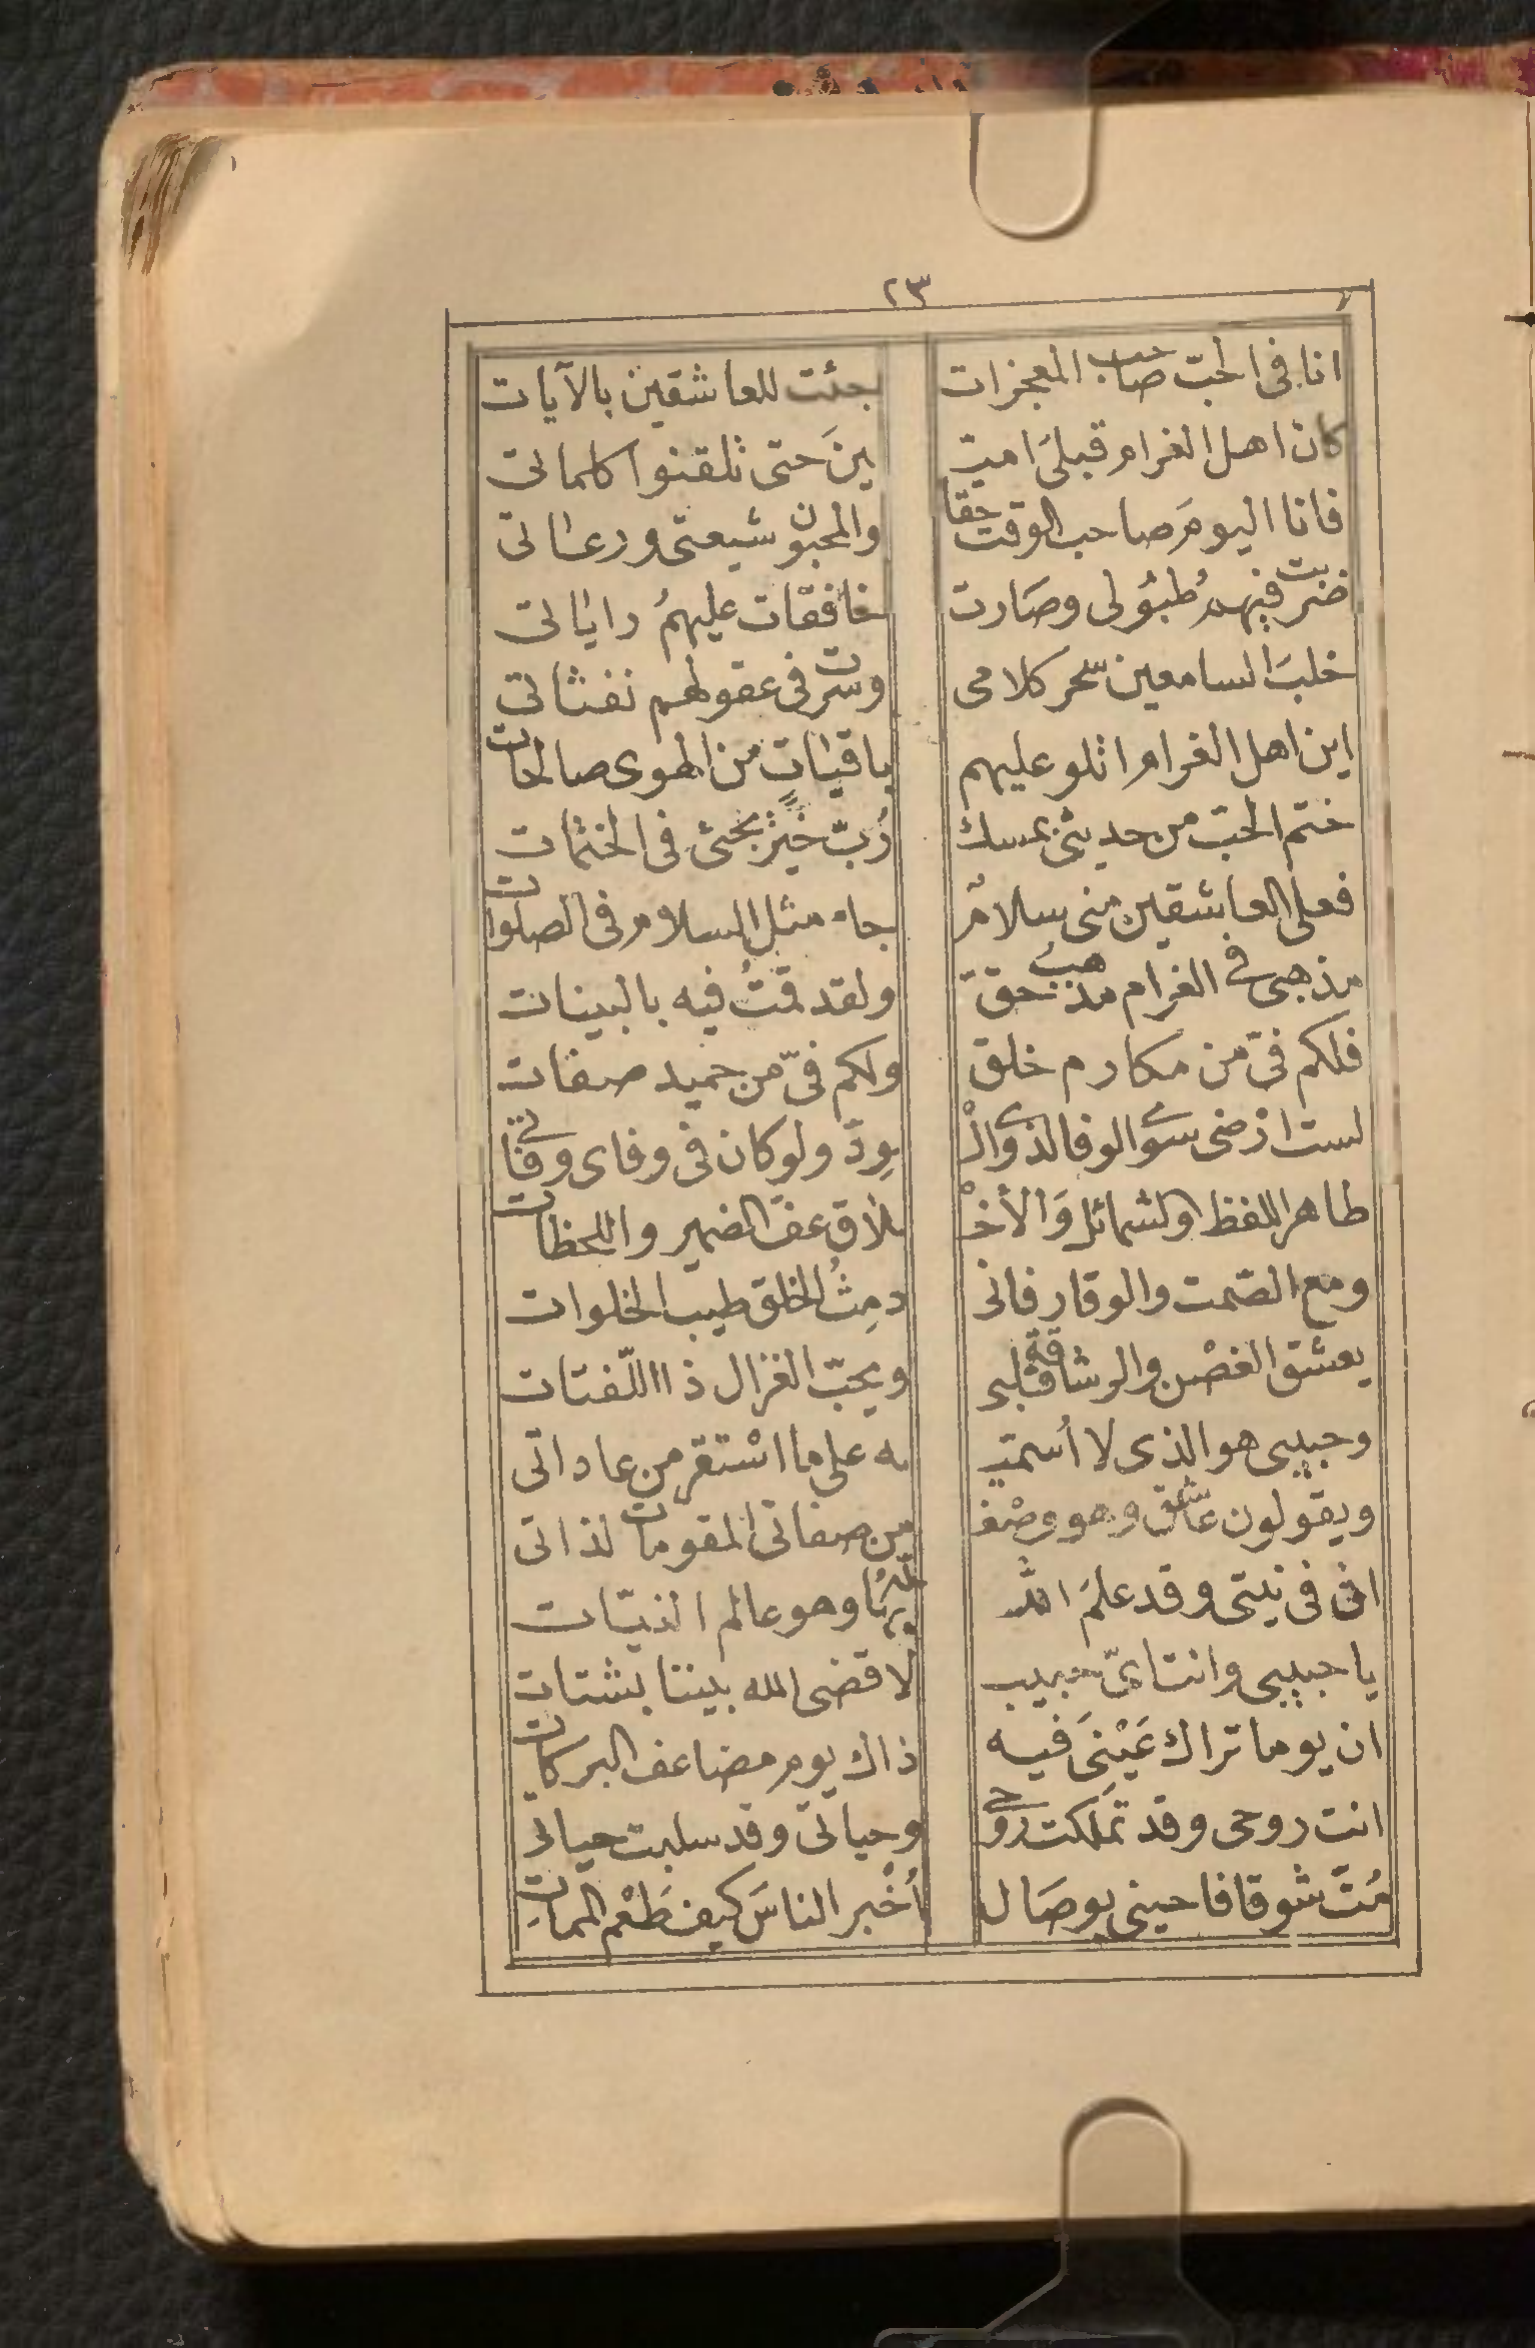 ٢٣
انا فى الحبّ صاحب المعجزات جئت للعاشقين بالآيات
كان اهل الغرام قبلىَ امييـ ـينَ حتى تلقنوا كلماتى
فانا اليومَ صاحب الوقت حقا والمحبون شيعتى ورعاتى
ضربت فيهم طُبُولى وصَارت خافقات عليهمُ راياتى
خلبَ السامعين سحر كلامى وسرت فى عقولهم نفثاتى
اين اهل الغرام اتلو عليهم باقيات من الهوى صالحات
ختم الحبّ من حديثى بمسك رُبّ خيرٍ يجئ فى الختمات
فعلى العاشقين منى سلامٌ جاء مثل السلام فى الصلوات
مذهبى فى الغرام مذهبُ حق ولقد قمتُ فيه بالبينات
فلكم فىّ من مكارم خلق ولكم فىّ من حميد صفات
لست ارْضى سوى الوفا لذوى الْـ ـوِدّ ولو كان فى وفاى وفاتى
طاهر اللفظ والشمائل وَالأخْـ ـلاق عفّ الضمير واللحظات
ومع الصّمت والوقار فانى دمِثُ الخلق طيب الخلوات
يعشق الغصْن والرشاقة قلبى ويحبّ الغزال ذا اللّفتات
وحبيبى هو الذى لا أسميـ ـه على ما اسْتقر من عاداتى
ويقولون عاشق وهو وصْف من صفاتى المقومات لذاتى
ان فى نيتى وقد علمَ اللّه وهو عالم النيّات
يا حبيبى وانت اىّ حبيب لا قضى الله بيننا بشتات
ان يوما تراك عَيْنىَ فيه ذاك يوم مضاعف البركات
انت روحى وقد تملكت روحى وحياتى وقد سلبت حياتى
مُتّ شوقا فاحينى بوصَال أخْبر الناسَ كيف طَعْم الممات